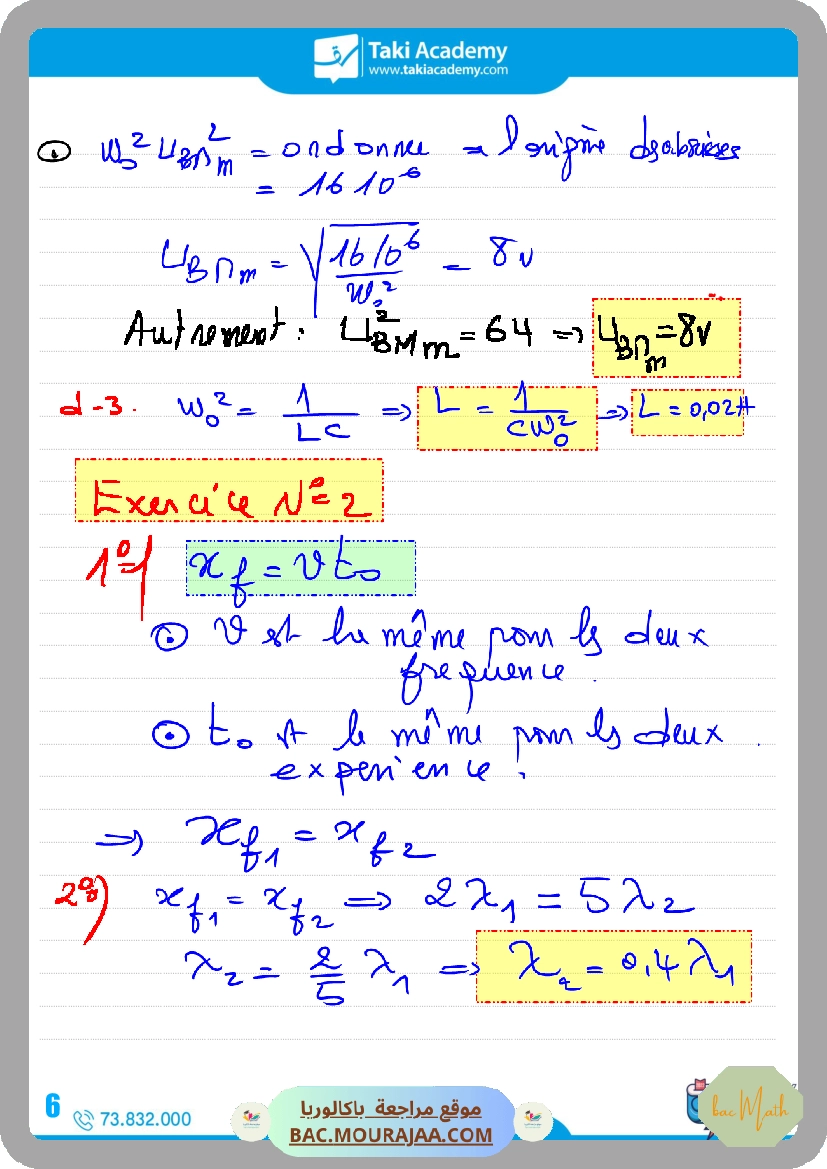 Taki Academy
www.takiacademy.com
ω₀² U_BM_m² = ordonnée à l'origine des abscisses
= 16 10⁶
U_BM_m = √(16 10⁶ / ω₀²) = 8 v
Autrement : U²_BM m = 64 => U_BM_m = 8v
d-3. ω₀² = 1/LC => L = 1/Cω₀² => L = 0,02H
Exercice N°= 2
1°/ x_f = v t₀
v est la même pour les deux
frequence.
t₀ est le même pour les deux
experience.
=> x_f1 = x_f2
2°) x_f1 = x_f2 => 2λ₁ = 5λ₂
λ₂ = 2/5 λ₁ => λ₂ = 0,4 λ₁
6 73.832.000
موقع مراجعة باكالوريا
BAC.MOURAJAA.COM
bac Math